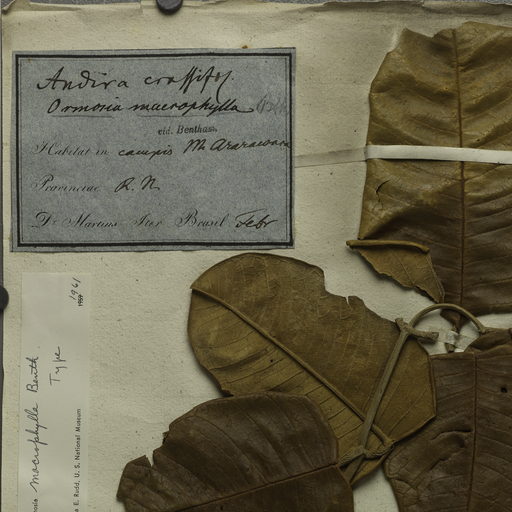 Andira crassifol.
Ormosia macrophylla Bth
vid. Bentham.
Habitat in campis M. Araracoara
Provinciae R. N.
Dr. Martius Iter Brasil. Febr
macrophylla Benth
Type
E. Rudd, U. S. National Museum
1961
1959